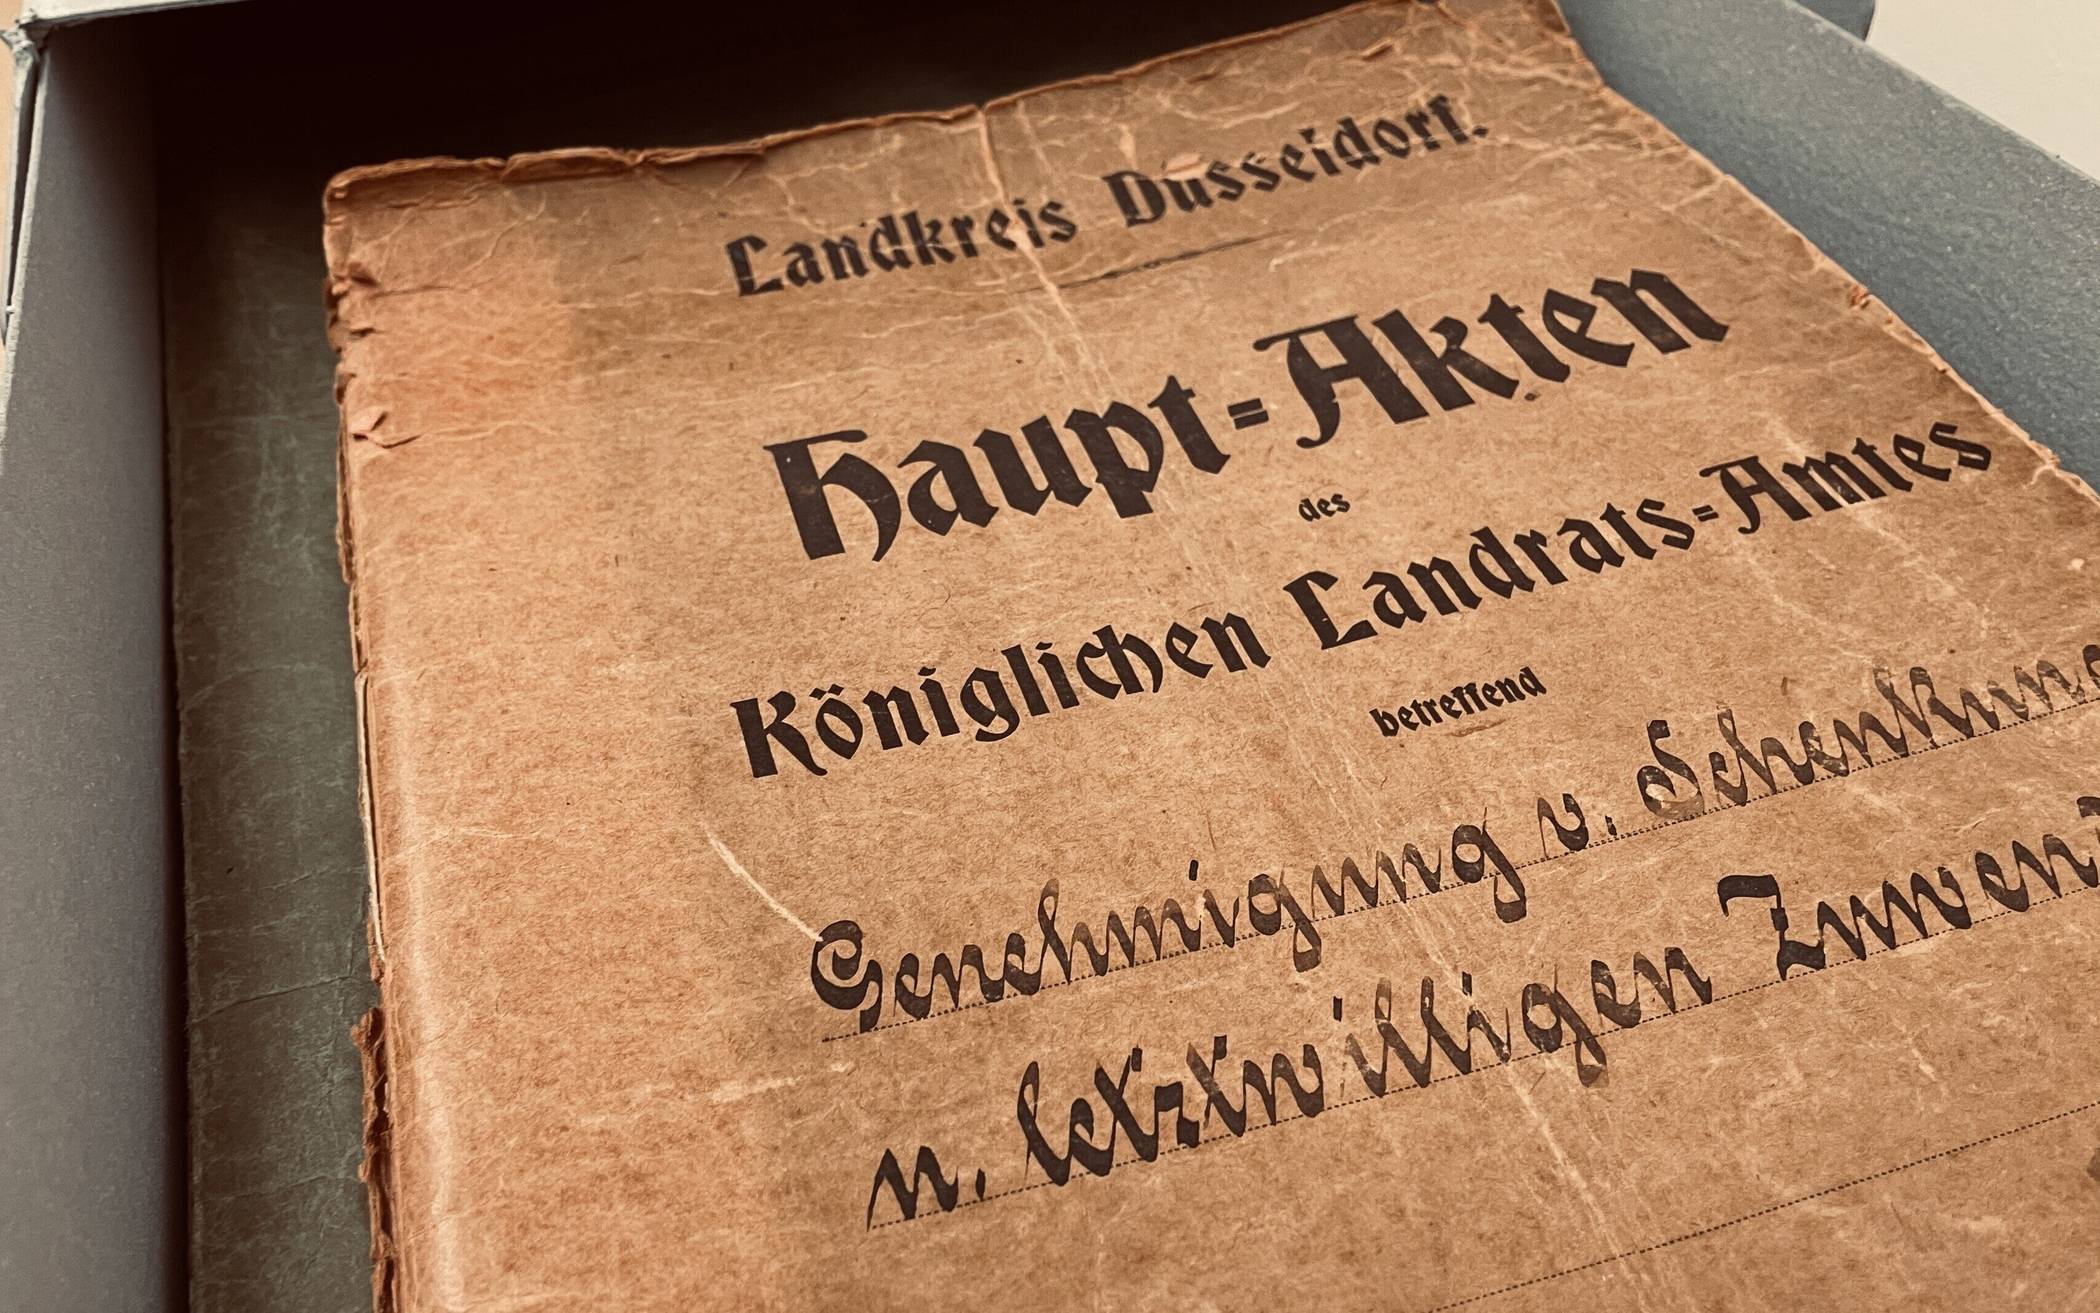 Landkreis Düsseldorf.
Haupt=Akten
des
Königlichen Landrats=Amtes
betreffend
Genehmigung v. Schenkung
u. letztwilligen Zuwend